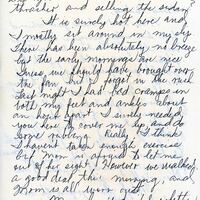 thrasher and selling the sedan
It is surely hot here and
I mostly sit around in my slip
There has been absolutely no breeze
but the early mornings are nice
I guess we should have brought over
the fan, but I forgot in the rush
Last night I had bad cramps in
both my feet and ankles about
an hour apart. I surely needed
you here to cover me up and do
some rubbing. Really I think
I haven't taken enough exercise
but Mom is afraid to let me
out of her sight. However we walked
a good deal this morning, and
Mom is all worn out.